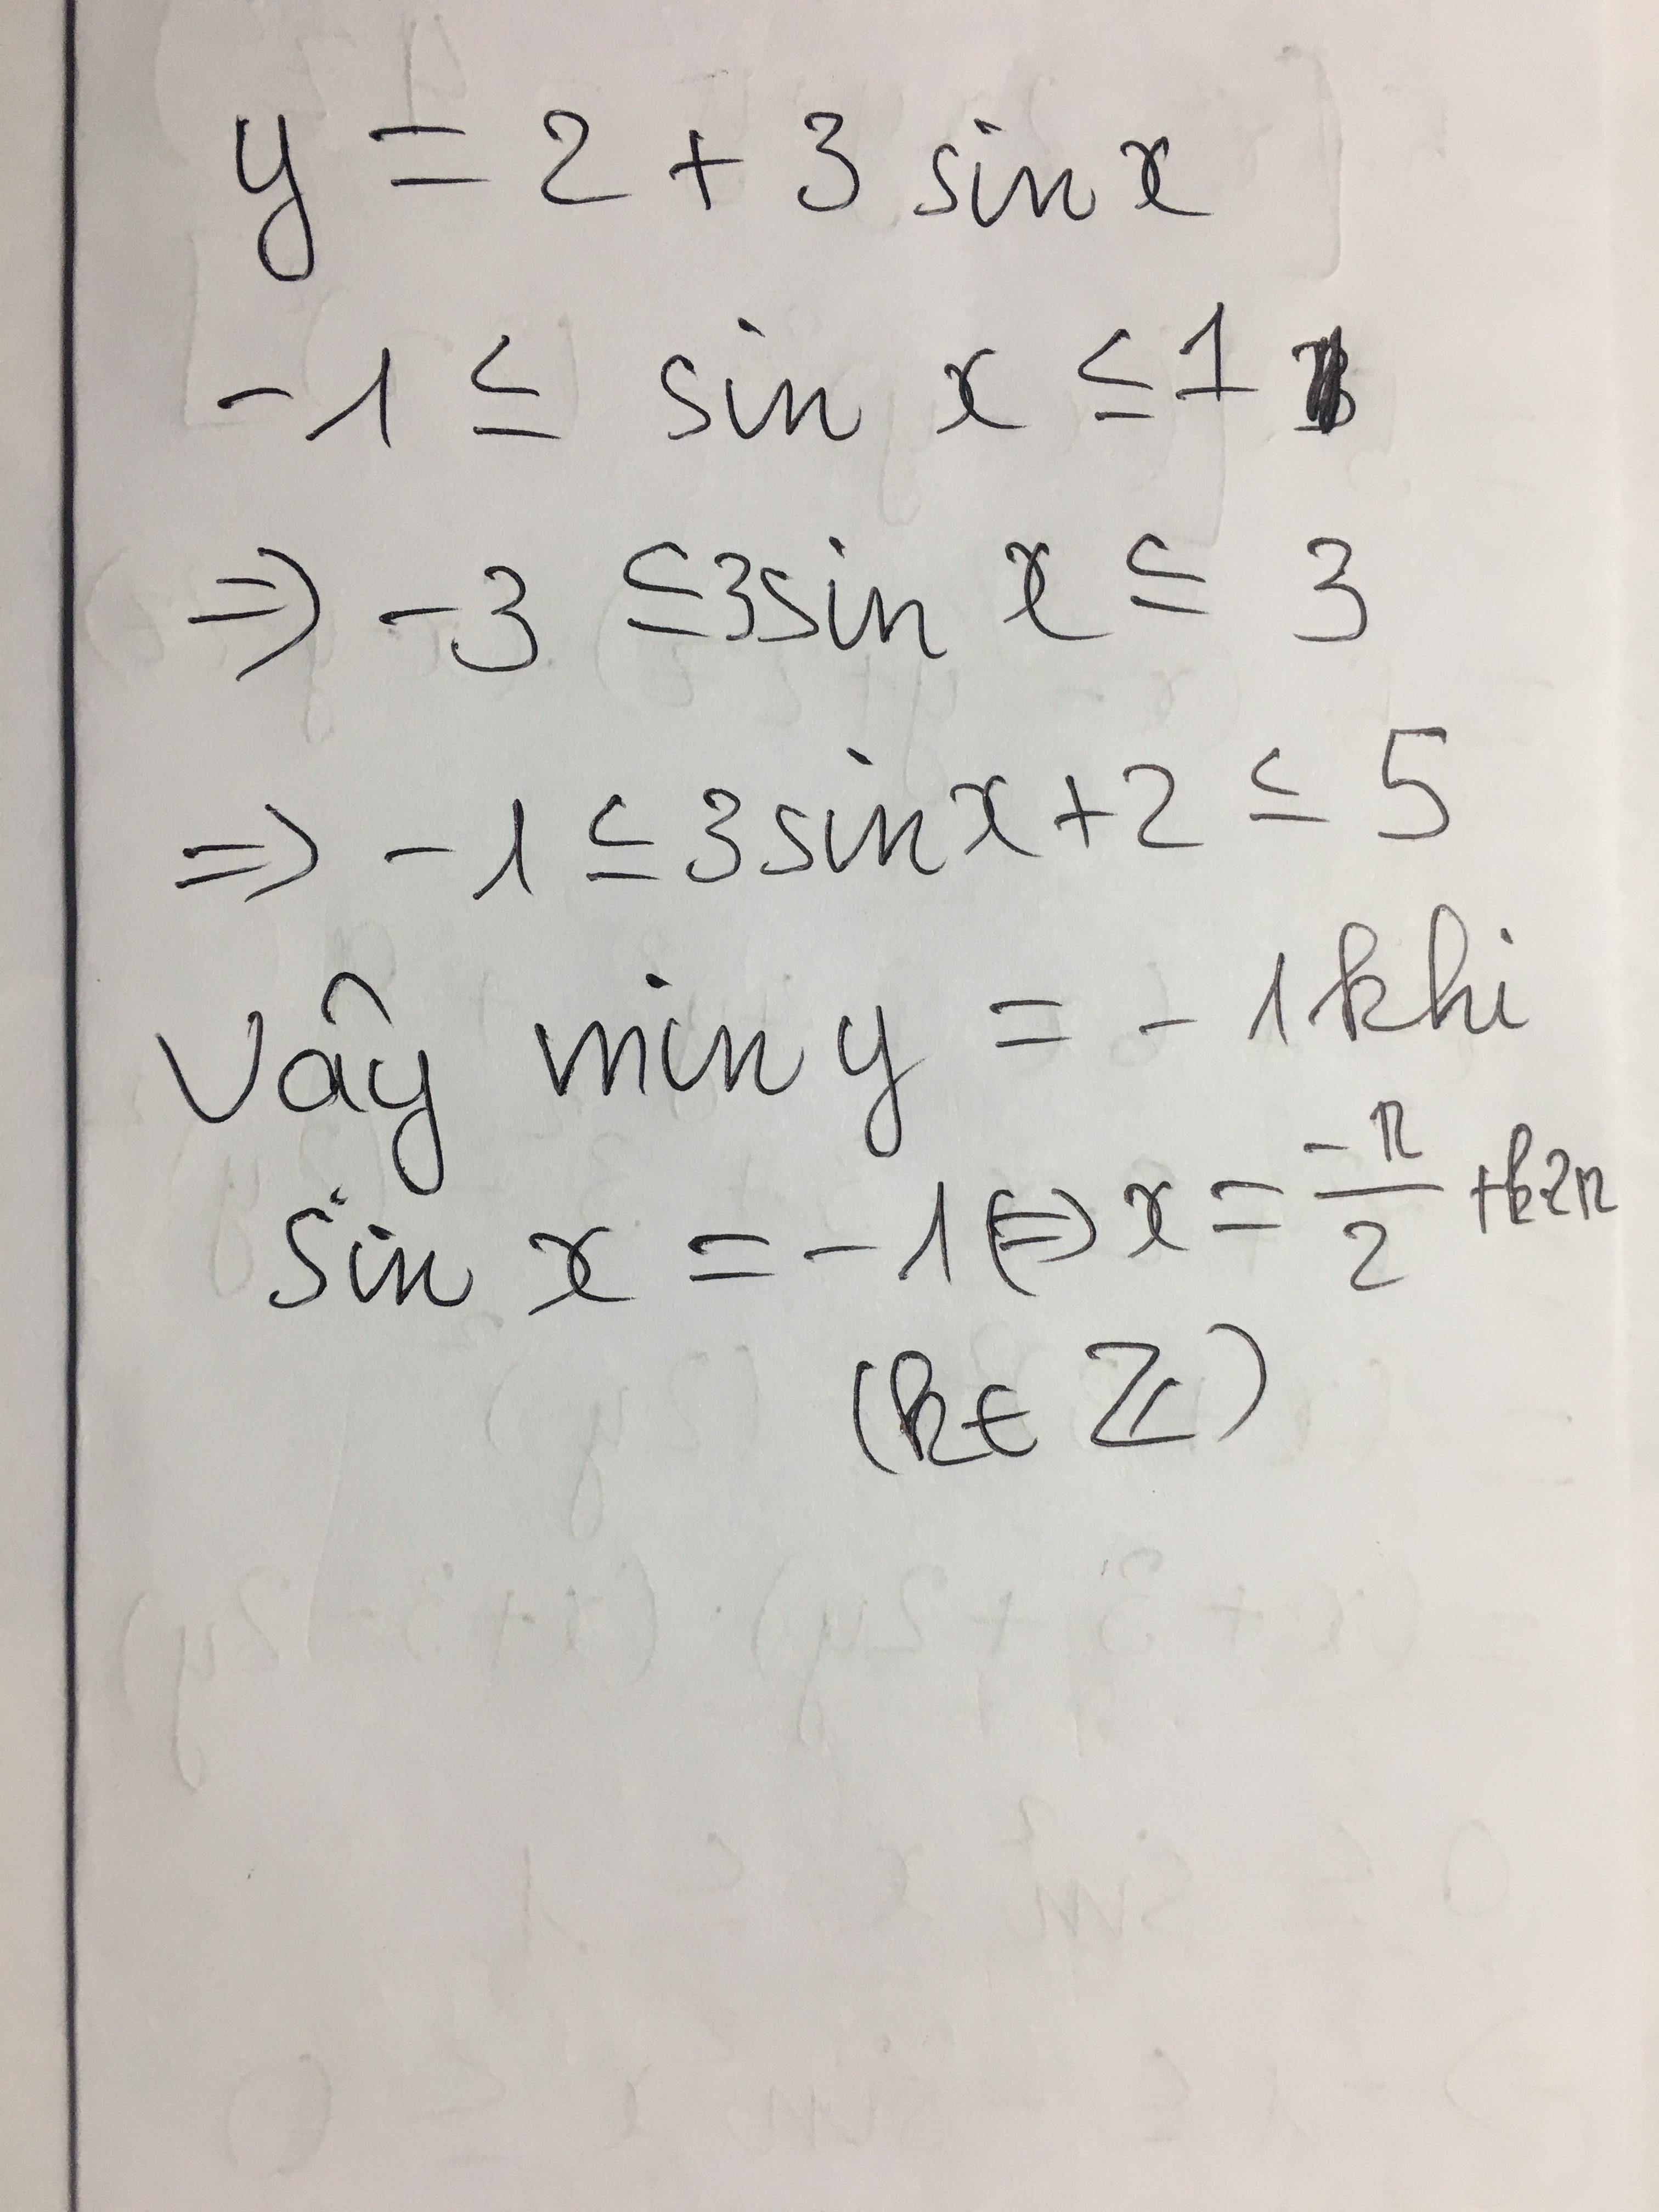 y = 2 + 3 sin x
-1 ≤ sin x ≤ 1
⇒ -3 ≤ 3sin x ≤ 3
⇒ -1 ≤ 3sinx + 2 ≤ 5
Vây min y = -1 khi
sin x = -1 ⇔ x = -π/2 + k2π
(k ∈ ℤ)